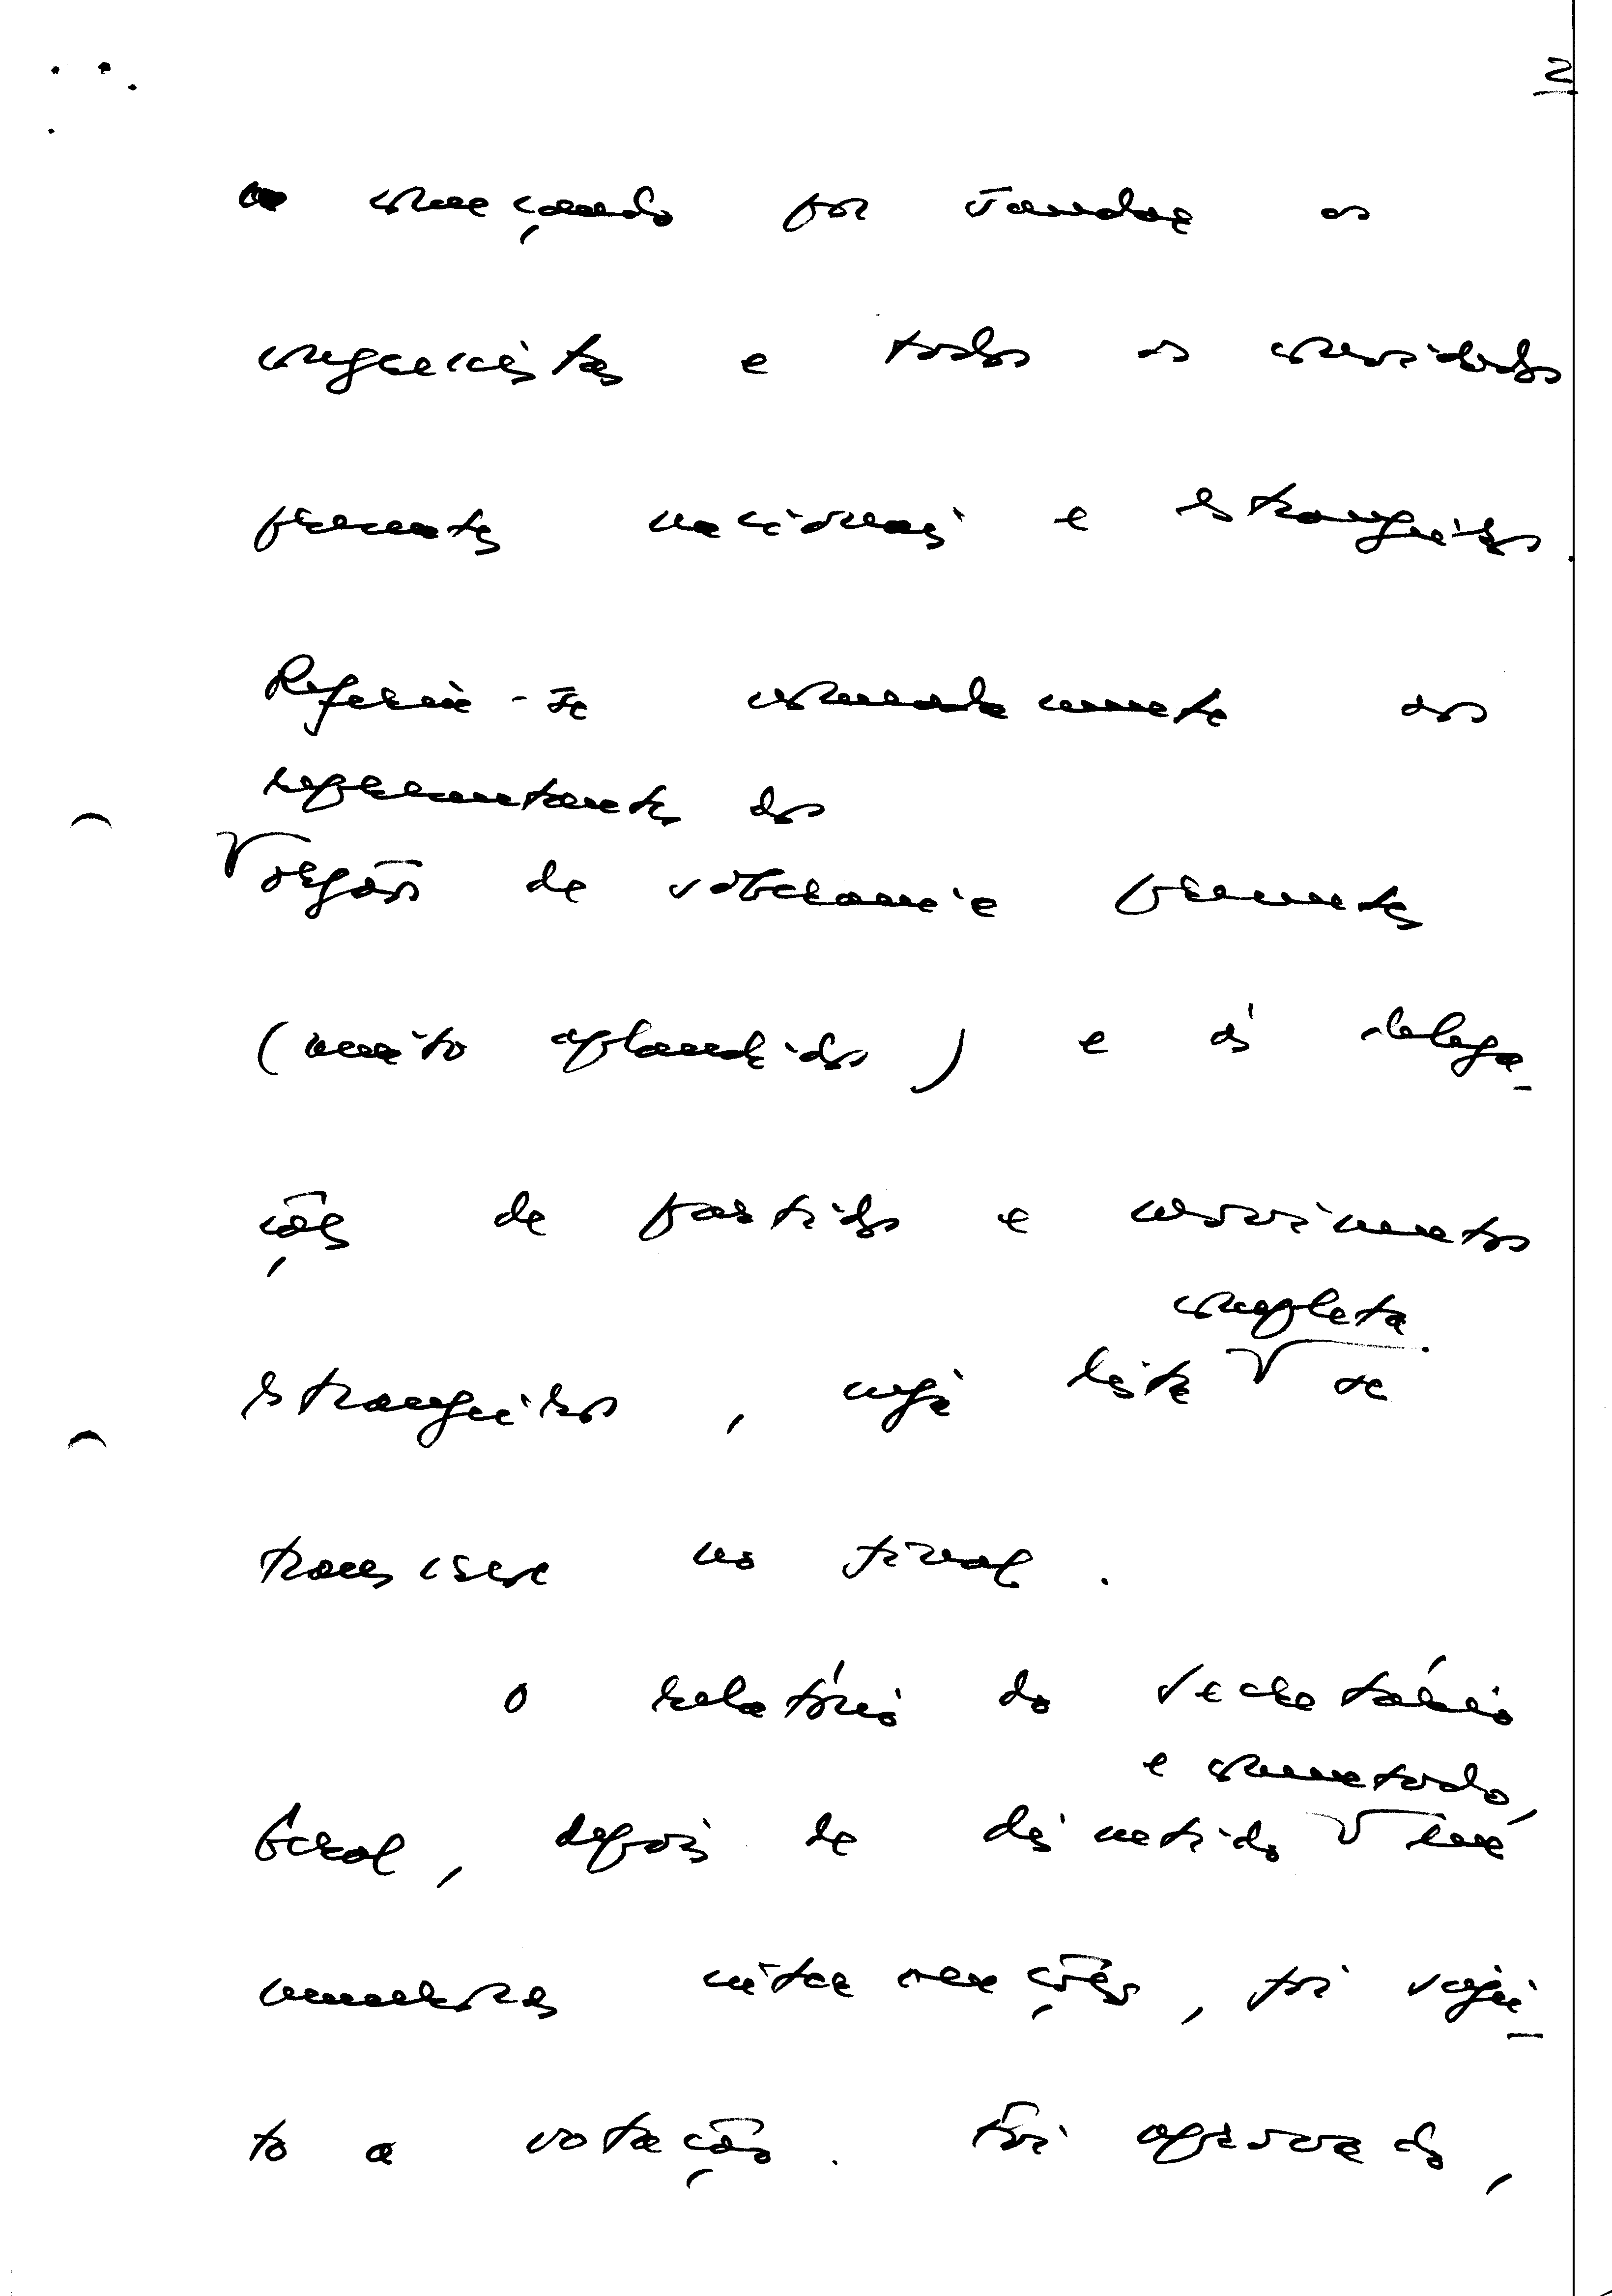 2
começando por saudar os
congressistas e todos os convidados
presentes nacionais e estrangeiros.
Referiu-se nomeadamente aos
representantes dos
orgãos de soberania presentes
(muito aplaudidos) e às delega-
ções de partidos e movimentos
completa
estrangeiros, cuja lista se
transcreve no final.
O relatório do Secretário
e comentado,
Geral, depois de discutido em
numerosas intervenções, foi sujei-
to a votação. Foi aprovado,